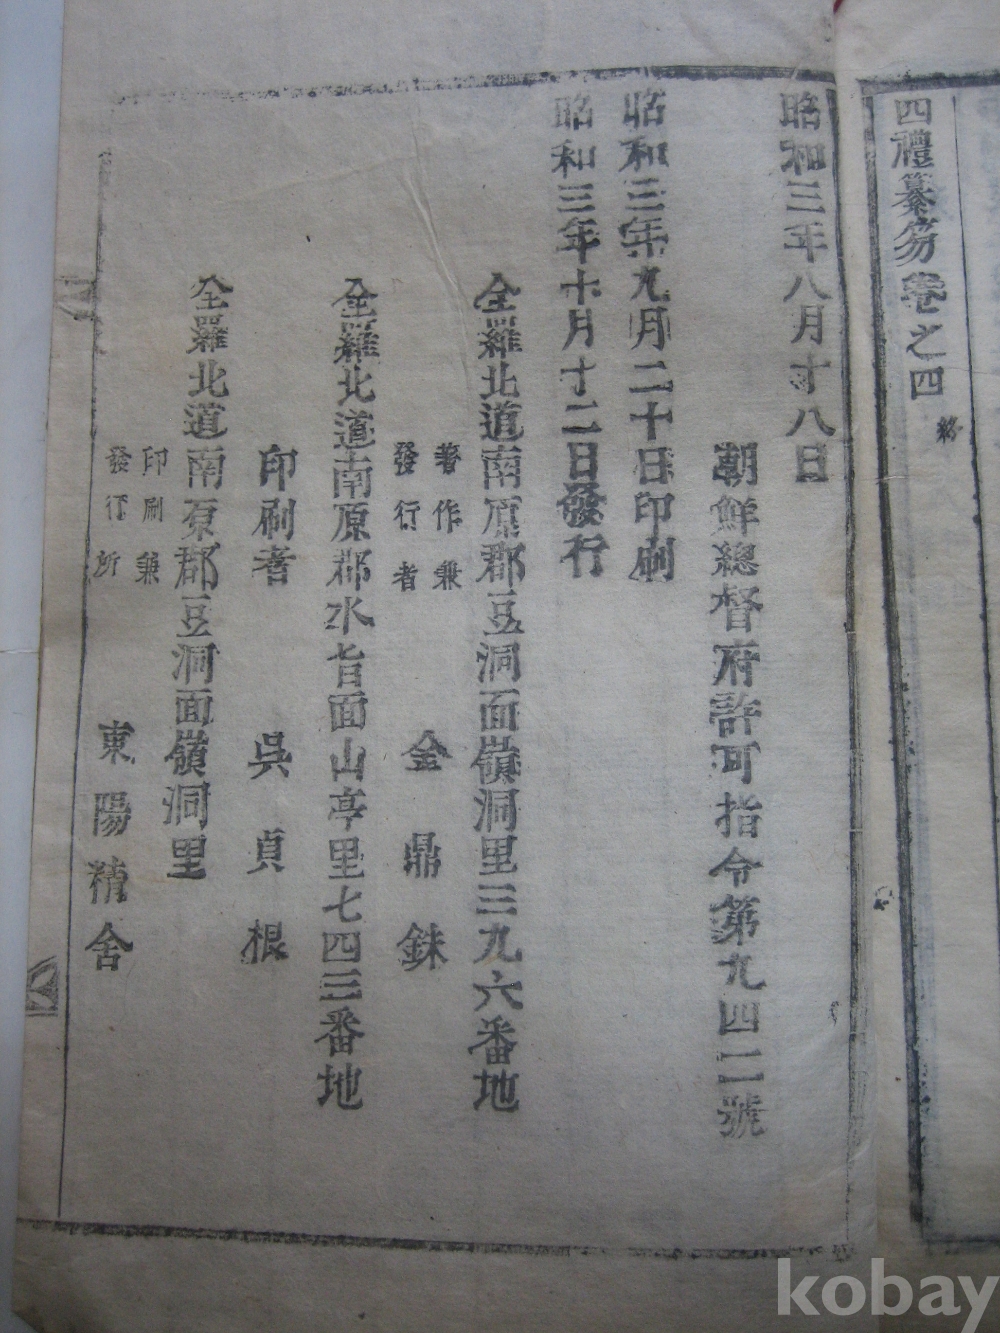 四禮纂笏卷之四 終
昭和三年八月十八日
朝鮮總督府許可指令第九四二號
昭和三年九月二十日印刷
昭和三年十月十二日發行
全羅北道南原郡豆洞面嶺洞里三九六番地
著作兼
發行者
金鼎銖
全羅北道南原郡水旨面山亭里七四三番地
印刷者 吳貞根
全羅北道南原郡豆洞面嶺洞里
印刷兼
發行所
東陽精舍
kobay